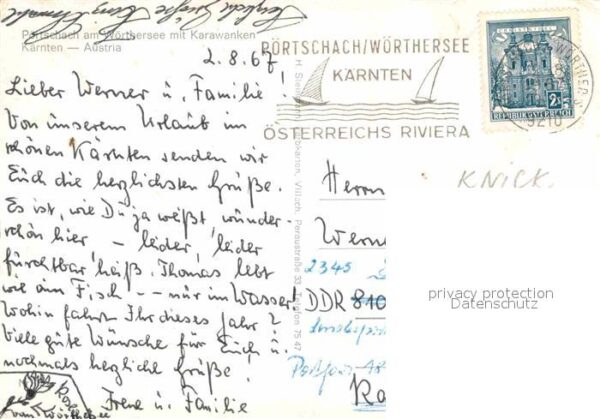 Pörtschach am Wörthersee mit Karawanken
Kärnten — Austria
2.8.67
Lieber Werner u. Familie!
Von unserem Urlaub im
schönen Kärnten senden wir
Euch die herzlichsten Grüße.
Es ist, wie Du ja weißt, wunder-
schön hier, – leider, leider
furchtbar heiß. Thomas lebt
wie ein Fisch – nur im Wasser!
Wohin fahrt Ihr dieses Jahr?
Viele gute Wünsche für Euch u.
nochmals herzliche Grüße!
Irene u. Familie
PÖRTSCHACH/WÖRTHERSEE
KÄRNTEN
ÖSTERREICHS RIVIERA
REPUBLIK ÖSTERREICH
9210
Villach, Peraustraße 33, Telefon 7547
KNICK.
Herrn
Werne
2345
DDR 8
privacy protection
Datenschutz